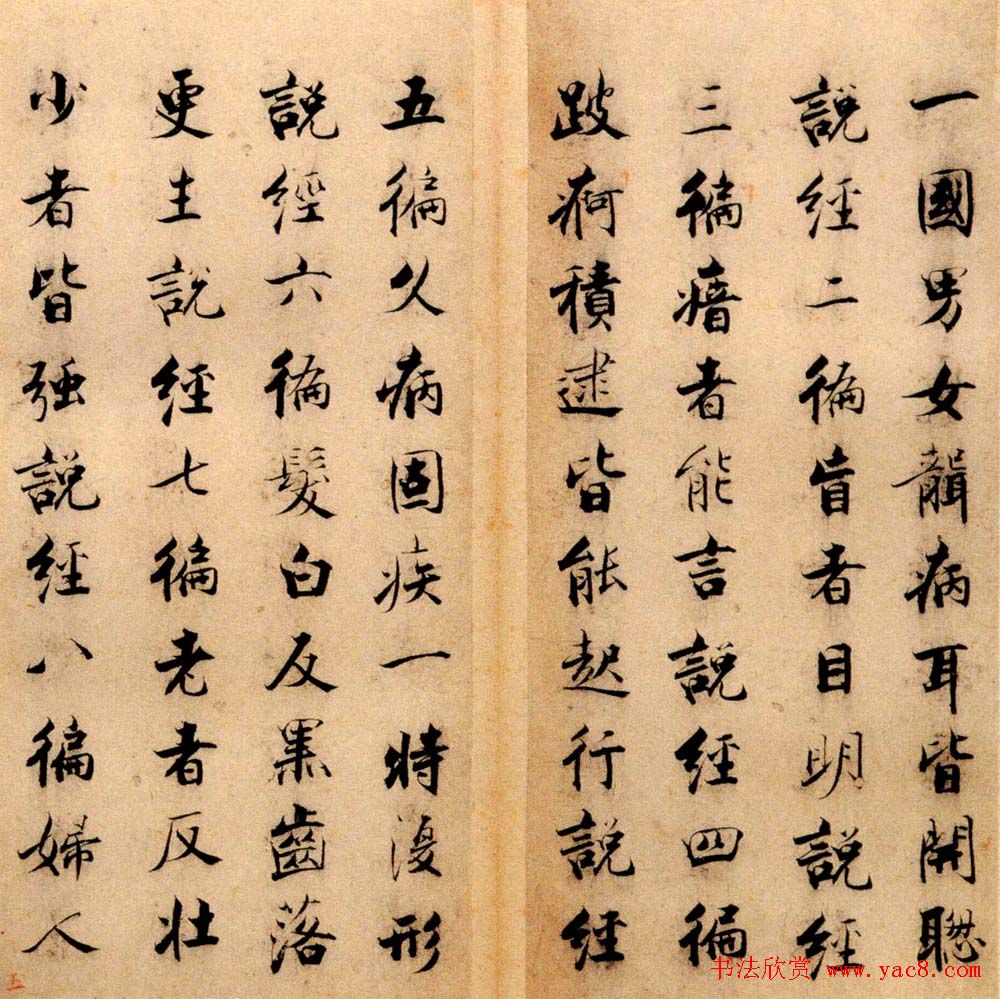 一國男女聾病耳皆開聰
說經二徧盲者目明說經
三徧瘖者能言說經四徧
跛痾積逮皆能起行說經
五徧久病固疾一時復形
說經六徧髮白反黑齒落
更生說經七徧老者反壯
少者皆强說經八徧婦人
五
书法欣赏 www.yac8.com